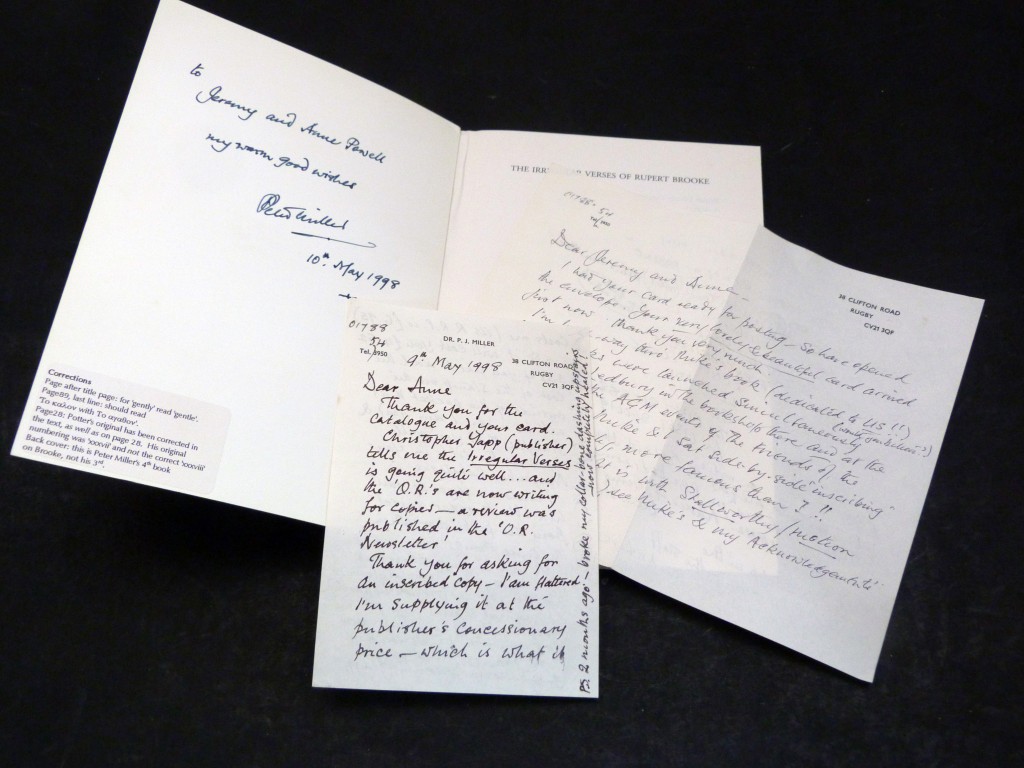 to
Jeremy and Anne Powell
my warm good wishes
Peter Miller
10th May 1998
Corrections
Page after title page: for 'gently' read 'gentle'.
Page89, last line: should read
'Το καλον with Το αγαθον'.
Page28: Potter's original has been corrected in
the text, as well as on page 28. His original
numbering was 'xxxvii' and not the correct 'xxxviii'
Back cover: this is Peter Miller's 4th book
on Brooke, not his 3rd.
THE IRR VERSES OF RUPERT BROOKE
01788
54
Tel. 3950
DR. P. J. MILLER
38 CLIFTON ROAD
RUGBY
CV21 3QF
9th May 1998
Dear Anne
Thank you for the
catalogue and your card.
Christopher Yapp (publisher)
tells me the Irregular Verses
is going quite well... and
the 'O.R.'s are now writing
for copies — a review was
published in the 'O.R.
Newsletter'
Thank you for asking for
an inscribed copy — I am flattered!
I'm supplying it at the
publisher's concessionary
price — which is what is
PS. 2 months ago I broke my collar-bone dashing upstairs
now completely healed!
01788-54
Dear Jeremy and Anne —
I had your card ready for posting — so have opened
the envelope. Your very lovely & beautiful card arrived
just now — thank you very much.
I'm way here. Mike's book (dedicated to US !!)
were launched simultaneously
edbury in the bookshop there and at the
AGM events of the Friends of the
Mike & I sat side-by-side 'inscribing'
more famous than I !!
it is with Stallworthy / Motion
see Mike's & my 'Acknowledgements'.
38 CLIFTON ROAD
RUGBY
CV21 3QF